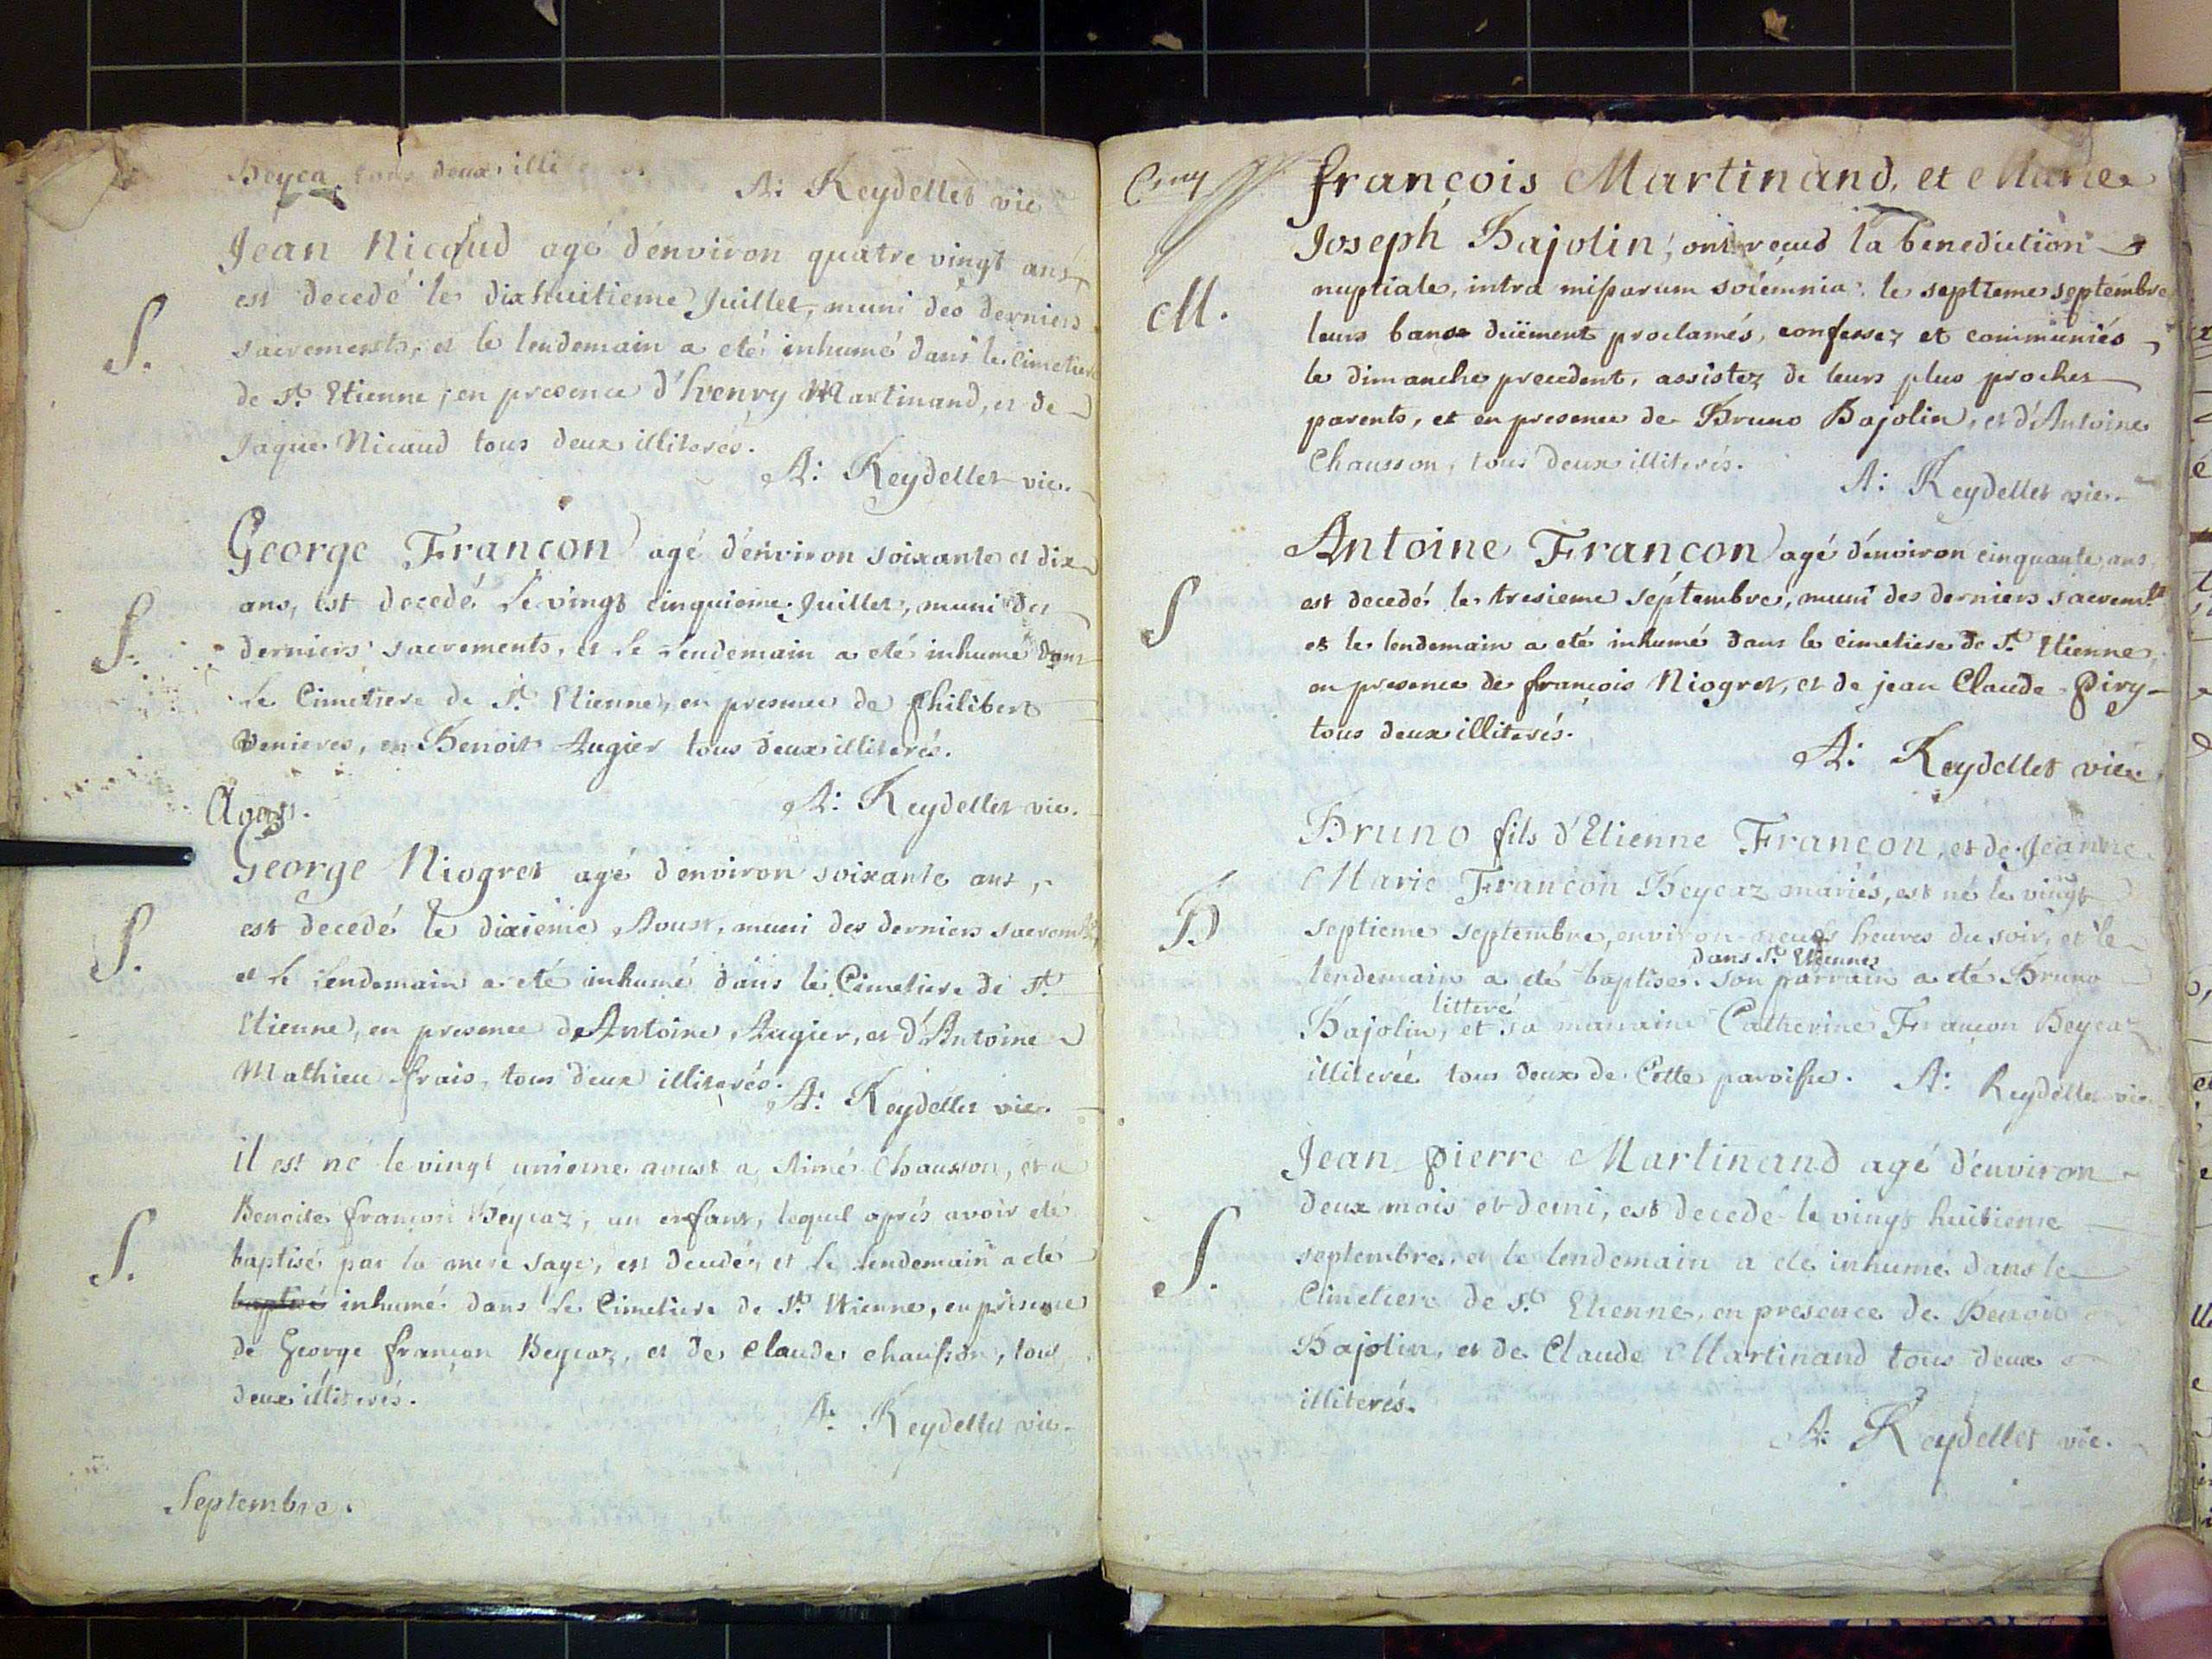 Beyca tous deux illi
A: Reydellet vic
Jean Nicaud agé d'environ quatre vingt ans
est decedé le dixhuitieme Juillet, muni des derniers
S.
sacrements, et le lendemain a eté inhumé dans le cimetiere
de St. Etienne, en presence d'henry Martinand, et de
Jaque Nicaud tous deux illiterés.
A: Reydellet vic.
George Francon agé d'environ soixante et dix
ans, est decedé le vingt cinquieme Juillet, muni des
S.
derniers sacrements, et le lendemain a eté inhumé dans
le Cimetiere de St. Etienne, en presence de philibert
Venieres, et Benoit Augier tous deux illiterés.
A: Reydellet vic.
Aoust.
George Niogret agé d'environ soixante ans,
est decedé le dixieme Aoust, muni des derniers sacremts,
S.
et le lendemain a eté inhumé dans le Cimetiere de St.
Etienne, en presence de Antoine Augier, et d'Antoine
Mathieu frais, tous deux illiterés.
A: Reydellet vic.
il est né le vingt unieme aoust a Aimé Chausson, et a
Benoite françon Beycaz, un enfant, lequel aprés avoir eté
S.
baptisé par la mere sage, est decedé, et le lendemain a eté
baptisé inhumé dans le Cimetiere de St. Etienne, en presence
de George françon Beycaz, et de Claude chausson, tous
deux illiterés.
A: Reydellet vic.
Septembre.
Cinq
françois Martinand, et Marie
Joseph Bajolin, ont reçus la benediction
nuptiale, intra missarum solemnia, le septieme septembre
M.
leurs bans düement proclamés, confessez et communiés
le dimanche precedent, assistez de leurs plus proches
parents, et en presence de Bruno Bajolin, et d'Antoine
Chausson, tous deux illiterés.
A: Reydellet vic.
Antoine Francon agé d'environ cinquante ans
est decedé le tresieme séptembre, muni des derniers sacremts
S
et le lendemain a eté inhumé dans le cimetiere de St. Etienne,
en presence de françois Niogret, et de jean Claude Piry
tous deux illiterés.
A: Reydellet vic.
Bruno fils d'Etienne Francon, et de Jeanne
Marie Francon Beycaz mariés, est né le vingt
B
septieme septembre, environ neufs heures du soir, et le
dans St. Etienne
lendemain a eté baptisé. son parrain a eté Bruno
litteré
Bajolin, et sa marraine Catherine Françon Beycaz
illiterée tous deux de Cette paroisse. A: Reydellet vic
Jean pierre Martinand agé d'environ
deux mois et demi, est decedé le vingt huitieme
S.
septembre, et le lendemain a eté inhumé dans le
Cimetiere de St. Etienne, en presence de Benoit
Bajolin, et de Claude Martinand tous deux
illiterés.
A: Reydellet vic.